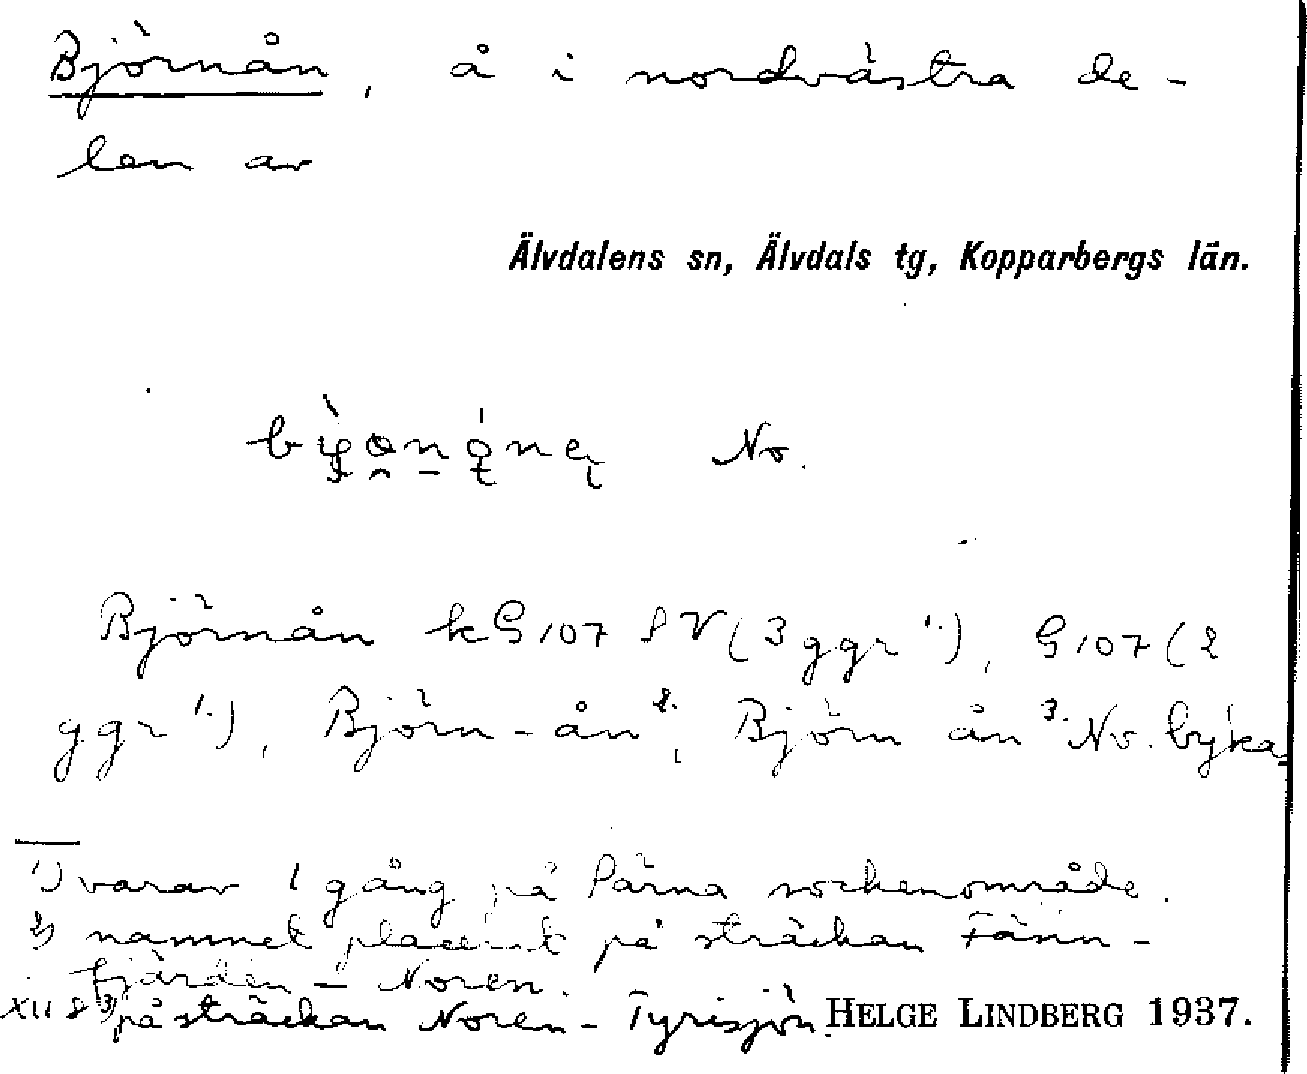 Björnån, å i nordvästra de-
len av
Älvdalens sn, Älvdals tg, Kopparbergs län.
No.
Björnån kG107 SV (3 ggr 1.), G107 (2
ggr 1.), Björn-ån 2., Björn ån 3. No. byka
1) varav 1 gång på Särna sockenområde.
2) namnet placerat på sträckan
fjärden – Noren.
XII 8 3) på sträckan Noren – Tyrisjön. HELGE LINDBERG 1937.